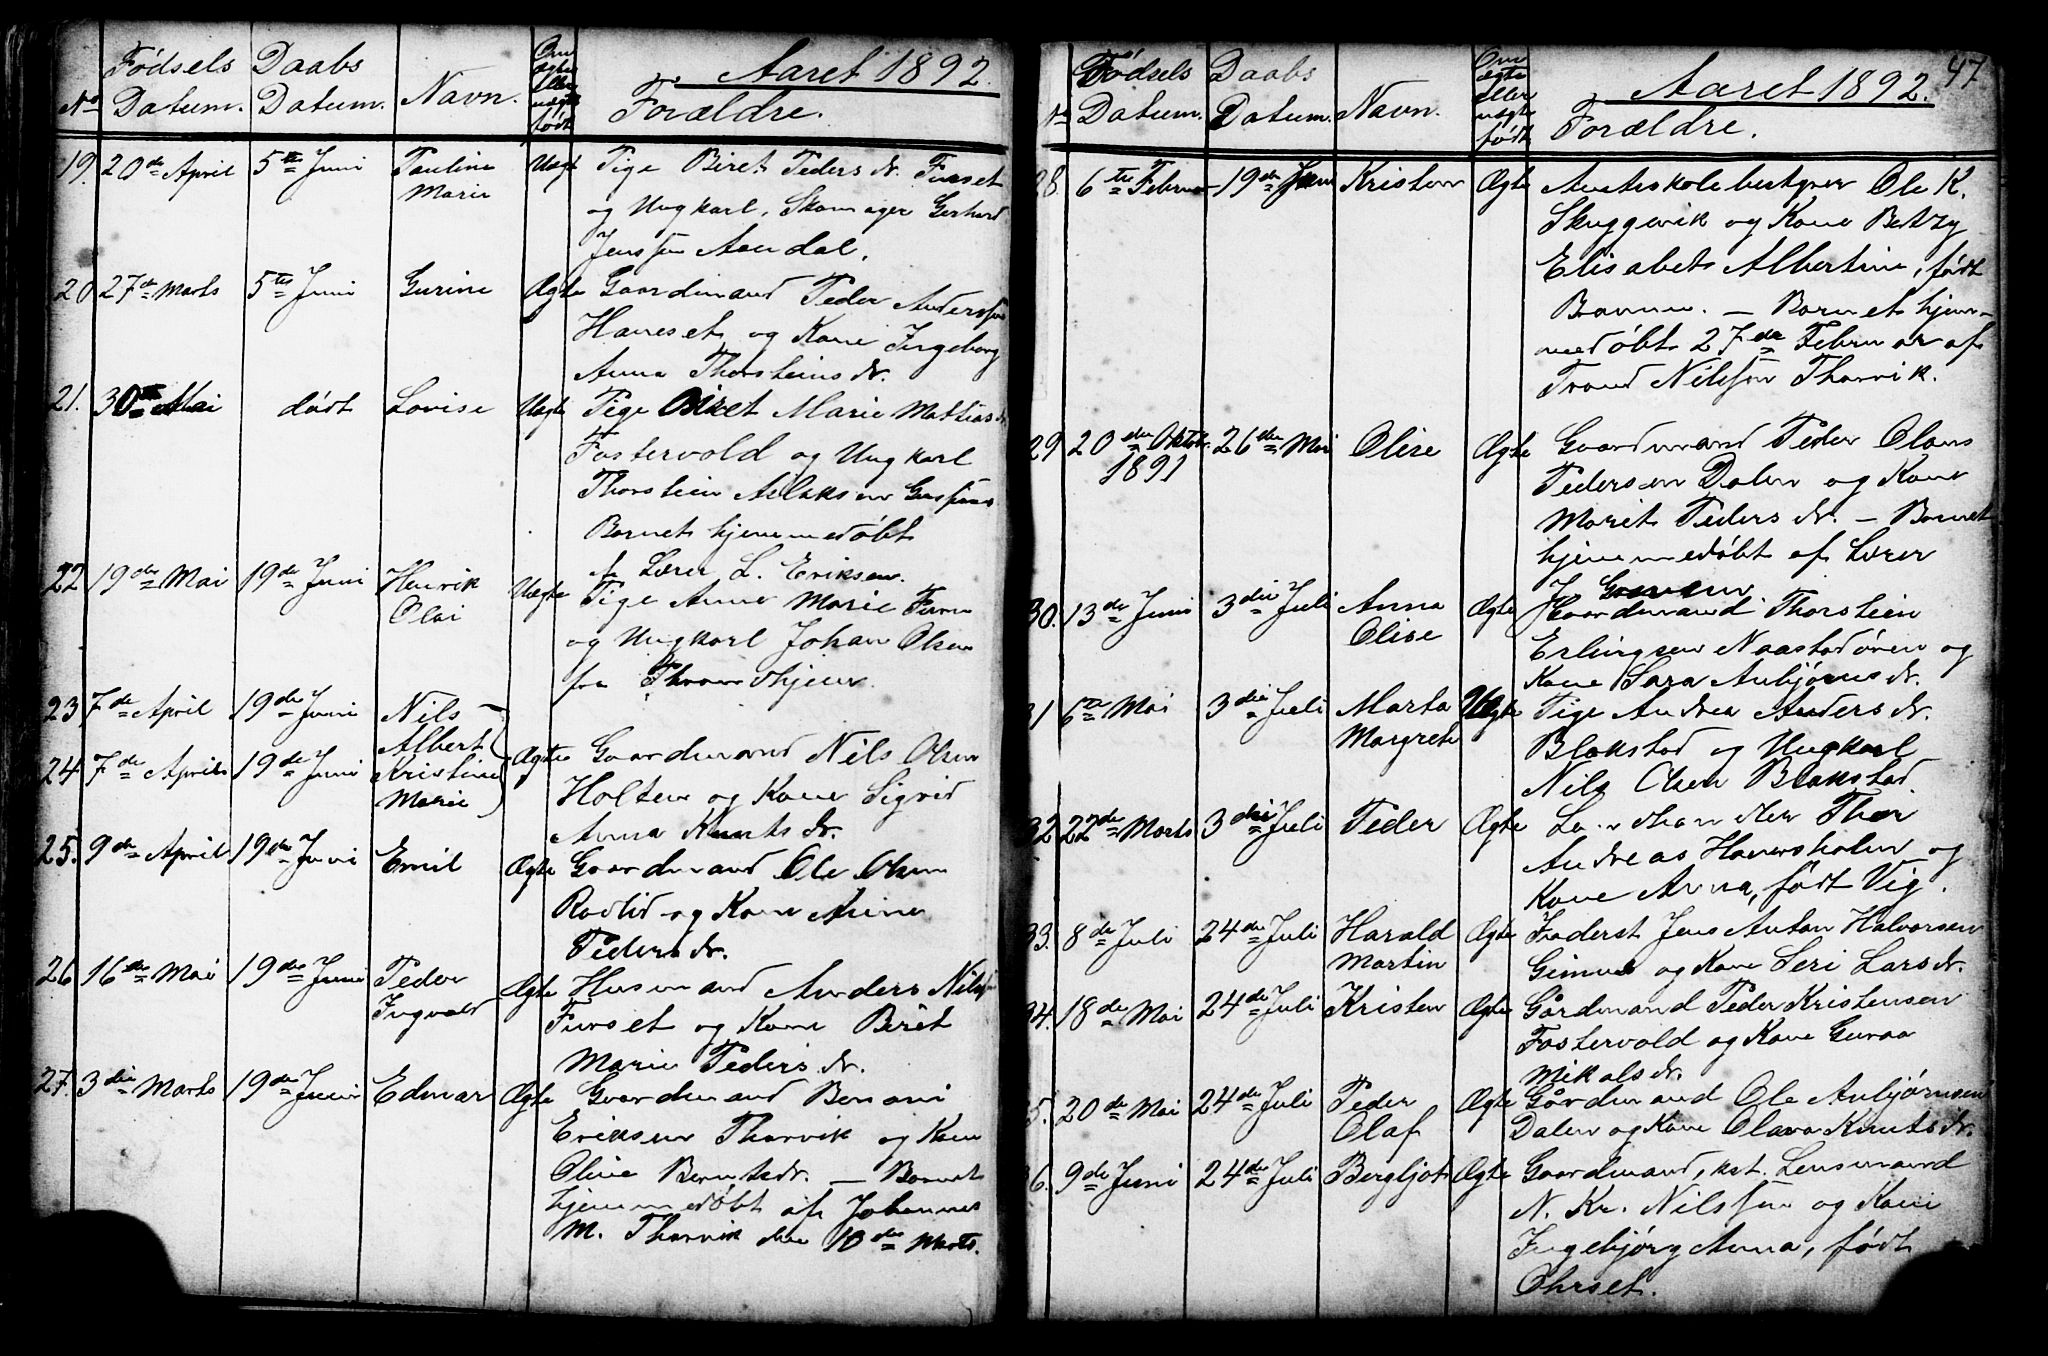 Aaret 1892.
No Fødsels Datum. Daabs Datum. Navn. Om ægte eller uægte født Forældre.
19. 20de April 5te Juni Pauline Uægt Pige Beret Peders dr. Furset
Marie og Ungkarl, Skomager Gerhard
Jenssen Aandal.
20 27de Marts 5te Juni Gurine Ægte Gaardmand Peder Anderssen
Haneset og Kone Ingeborg
Anna Thorsteins dr.
21. 30te Mai dødt Lovise Uægte Pige Beret Marie Mattias dr
Fostervold og Ungkarl
Thorstein Aslaksen
Barnet hjemmedøbt
af Lærer L. Eriksen.
22 19de Mai 19de Juni Henrik Uægte Pige Anne Marie
Olai og Ungkarl Johan Olsen
fra Throndhjem.
23 7de April 19de Juni Nils
Albert
24 7de April 19de Juni Kristine Ægte Gaardmand Nils Olsen
Marie Holten og Kone Sigrid
Anna Knuts dr.
25. 9de April 19de Juni Emil Ægte Gaardmand Ole Olsen
Rødlid og Kone Anne
Peders dr.
26 16de Mai 19de Juni Peder Ægte Husmand Anders Nilssen
Ingvald Furset og Kone Beret
Marie Peders dr.
27. 3die Marts 19de Juni Edvar Ægte Gaardmand Benoni
Eriksen Tharvik og Kone
Oline Berntsdr. — Barnet
hjemmedøbt af Johannes
M. Tharvik den 10de Marts.
47
Aaret 1892.
No Fødsels Datum. Daabs Datum. Navn. Om ægte eller uægte født Forældre.
28. 6te Februar 19de Juni Kristen Ægte Amtskolebestyrer Ole K.
Skuggevik og Kone Betzy
Elisabet Albertine, født
— Barnet hjem-
medøbt 27de Februar af
Trond Nilssen Tharvik.
29 20de Oktobr. 26de Mai Olise Ægte Gaardmand Peder Olaus
1891 Pedersen Dalen og Kone
Marit Peders dr. — Barnet
hjemmedøbt af Lærer
30. 13de Juni 3die Juli Anna Ægte Gaardmand Thorstein
Olise Erlingsen Naastadøren og
Kone Sara Anbjørns dr.
31 6te Mai 3die Juli Marta Uægte Pige Andrea Anders dr.
Margrete Blakstad og Ungkarl
Nils Olsen Blakstad.
32 22de Marts 3die Juli Peder Ægte Landhandler Thor
Andreas Haversholm og
Kone Anna, født Vig.
33. 8de Juli 24de Juli Harald Ægte Føderst Jens Anton Halvorsen
Martin Gimnes og Kone Seri Lars dr.
34. 18de Mai 24de Juli Kristen Ægte Gårdmand Peder Kristensen
Fostervold og Kone Guraa
Mikals dr.
35. 20de Mai 24de Juli Peder Ægte Gårdmand Ole Anbjørnsen
Olaf Dalen og Kone Olava Knuts dr.
36. 9de Juni 24de Juli Bergljot Ægte Gaardmand, kst. Lensmand
N. Kr. Nilssen og Kone
Ingebjørg Anna, født
Ohrset.